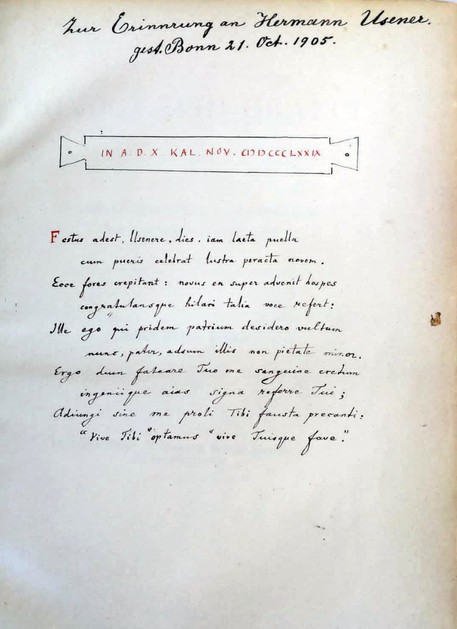 Zur Erinnrung an Hermann Usener.
gest. Bonn 21. Oct. 1905.
IN A. D. X. KAL. NOV. CIƆIƆCCCLXXIX
Festus adest, Usenere, dies. iam laeta puella
cum pueris celebrat lustra peracta novem.
Ecce fores crepitant: novus en super advenit hospes
congratulansque hilari talia voce refert:
Ille ego qui pridem patrium desidero vultum
nunc, pater, adsum illis non pietate minor.
Ergo dum fateare Tuo me sanguine cretum
ingeniique aias signa referre Tui;
Adiungi sine me proli Tibi fausta precanti:
"Vive Tibi" optamus "vive Tuisque fave."